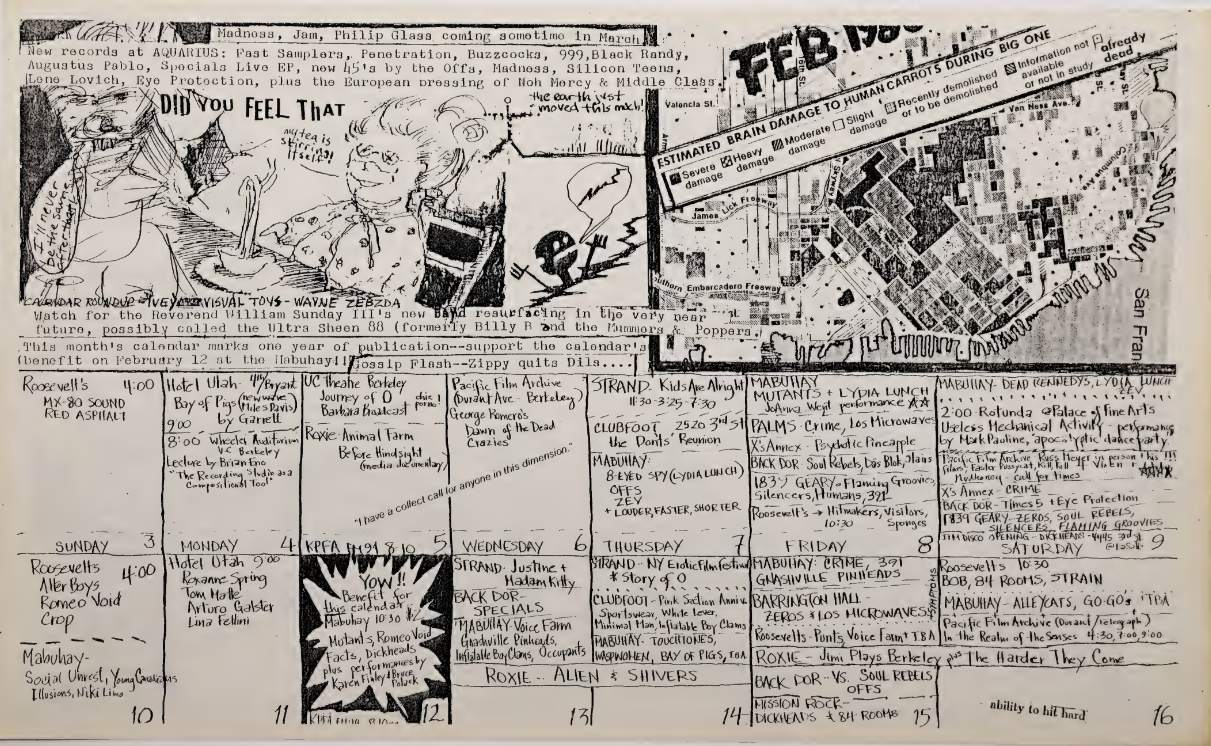 Madness, Jam, Philip Glass coming sometime in March
New records at AQUARIUS: Fast Samplers, Penetration, Buzzcocks, 999, Black Randy,
Augustus Pablo, Specials Live EP, new 45's by the Offs, Madness, Silicon Teens,
Lene Lovich, Eye Protection, plus the European pressing of Noh Mercy & Middle Class.
DID YOU FEEL THAT
my tea is
stirring
itself!
the earth just
moved this much!
I'll never
be the same
after that!
CALENDAR ROUNDUP - VISUAL TOYS - WAYNE ZEBZDA
Watch for the Reverend William Sunday III's new band resurfacing in the very near
future, possibly called the Ultra Sheen 88 (formerly Billy B and the Mummers & Poppers.
This month's calendar marks one year of publication--support the calendar's
(benefit on February 12 at the Mabuhay!!
Gossip Flash--Zippy quits Dils...
FEB 1980
ESTIMATED BRAIN DAMAGE TO HUMAN CARROTS DURING BIG ONE
Severe damage
Heavy damage
Moderate damage
Slight damage
Recently demolished or to be demolished
Information not available or not in study
already dead
Valencia St.
Van Ness Ave.
James Lick Freeway
Embarcadero Freeway
San Fran
Roosevelt's 4:00
MX-80 SOUND
RED ASPHALT
SUNDAY 3
Hotel Utah - 4th/Bryant
Bay of Pigs (new wave Miles Davis)
9:00 by Garrell
8:00 Wheeler Auditorium
UC Berkeley
Lecture by Brian Eno
"The Recording Studio as a
Compositional Tool"
MONDAY 4
UC Theatre Berkeley
Journey of O
Barbara Broadcast
chic porno
Roxie - Animal Farm
Before Hindsight
(media documentary)
KPFA FM 94 8-10 5
"I have a collect call for anyone in this dimension."
Pacific Film Archive
(Durant Ave - Berkeley)
George Romero's
Dawn of the Dead
Crazies
WEDNESDAY 6
STRAND. Kids Are Alright
11:30 - 3:25 - 7:30
CLUBFOOT 2520 3rd St
the Donts' Reunion
MABUHAY:
8-EYED SPY (LYDIA LUNCH)
OFFS
ZEV
+ LOUDER, FASTER, SHORTER
THURSDAY 7
MABUHAY
MUTANTS + LYDIA LUNCH
JoAnna Went performance
PALMS - Crime, Los Microwaves
X's Annex - Psychotic Pineapple
BACK DOR - Soul Rebels, Das Blok,
1839 GEARY - Flaming Groovies,
Silencers, Humans, 391
Roosevelt's → Hitmakers, Visitors,
10:30 Sponges
FRIDAY 8
MABUHAY - DEAD KENNEDYS, LYDIA LUNCH
ZEV
2:00 - Rotunda @ Palace of Fine Arts
Useless Mechanical Activity - performance
by Mark Pauline, "apocalyptic dance party"
Pacific Film Archive - Russ Meyer in person
films, Faster Pussycat, Kill, Kill
call for times
X's Annex - CRIME
BACK DOR - Times 5 + Eye Protection
1839 GEARY - ZEROS, SOUL REBELS,
SILENCERS, FLAMING GROOVIES
OPENING - DICKHEADS
SATURDAY 9
Roosevelts 4:00
Alter Boys
Romeo Void
Crop
Mabuhay -
Social Unrest, Young Canadians
Illusions, Niki Lima
10
Hotel Utah 9:00
Roxanne Spring
Tom Malle
Arturo Galster
Lina Fellini
11
YOW!!
Benefit for
this calendar
Mabuhay 10:30 $2
Mutants, Romeo Void
Facts, Dickheads
plus performances by
Karen Finley & Bruce
Poluck
12
STRAND: Justine +
Madam Kitty
BACK DOR -
SPECIALS
MABUHAY - Voice Farm
Gnashville Pinheads,
Inflatable Boy Clams, Occupants
ROXIE - ALIEN & SHIVERS
13
STRAND - NY Erotic Film Festival
& Story of O
CLUBFOOT - Pink Section Anniv.
Sportswear, White Lever,
Minimal Man, Inflatable Boy Clams
MABUHAY - TOUCHTONES,
WASPWOMEN, BAY OF PIGS, TBA
14
MABUHAY: CRIME, 391
GNASHVILLE PINHEADS
BARRINGTON HALL -
ZEROS & LOS MICROWAVES
SYMPTOMS
Roosevelts - Punts, Voice Farm + TBA
ROXIE - Jimi Plays Berkeley plus The Harder They Come
BACK DOR - VS. SOUL REBELS
OFFS
MISSION ROCK -
DICKHEADS & 84 ROOMS 15
Roosevelts 10:30
BOB, 84 ROOMS, STRAIN
MABUHAY - ALLEYCATS, GO-GO's TBA
Pacific Film Archive (Durant/telegraph)
In the Realm of the Senses 4:30, 7:00, 9:00
ability to hit hard
16